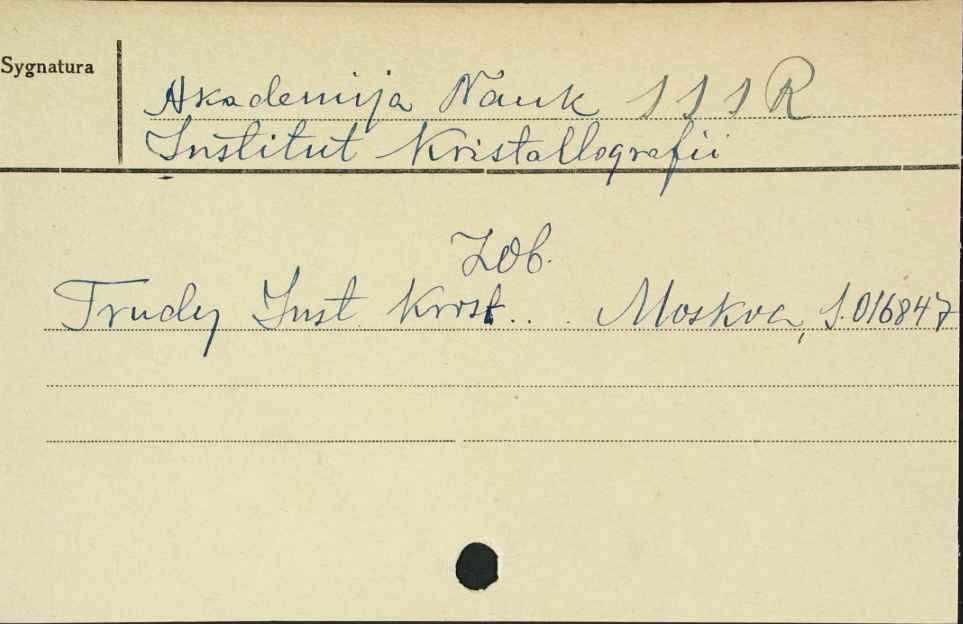 Sygnatura
Akademija Nauk SSSR
Institut Kristallografii
Zob.
Trudy Inst Krist... Moskva, S.016847